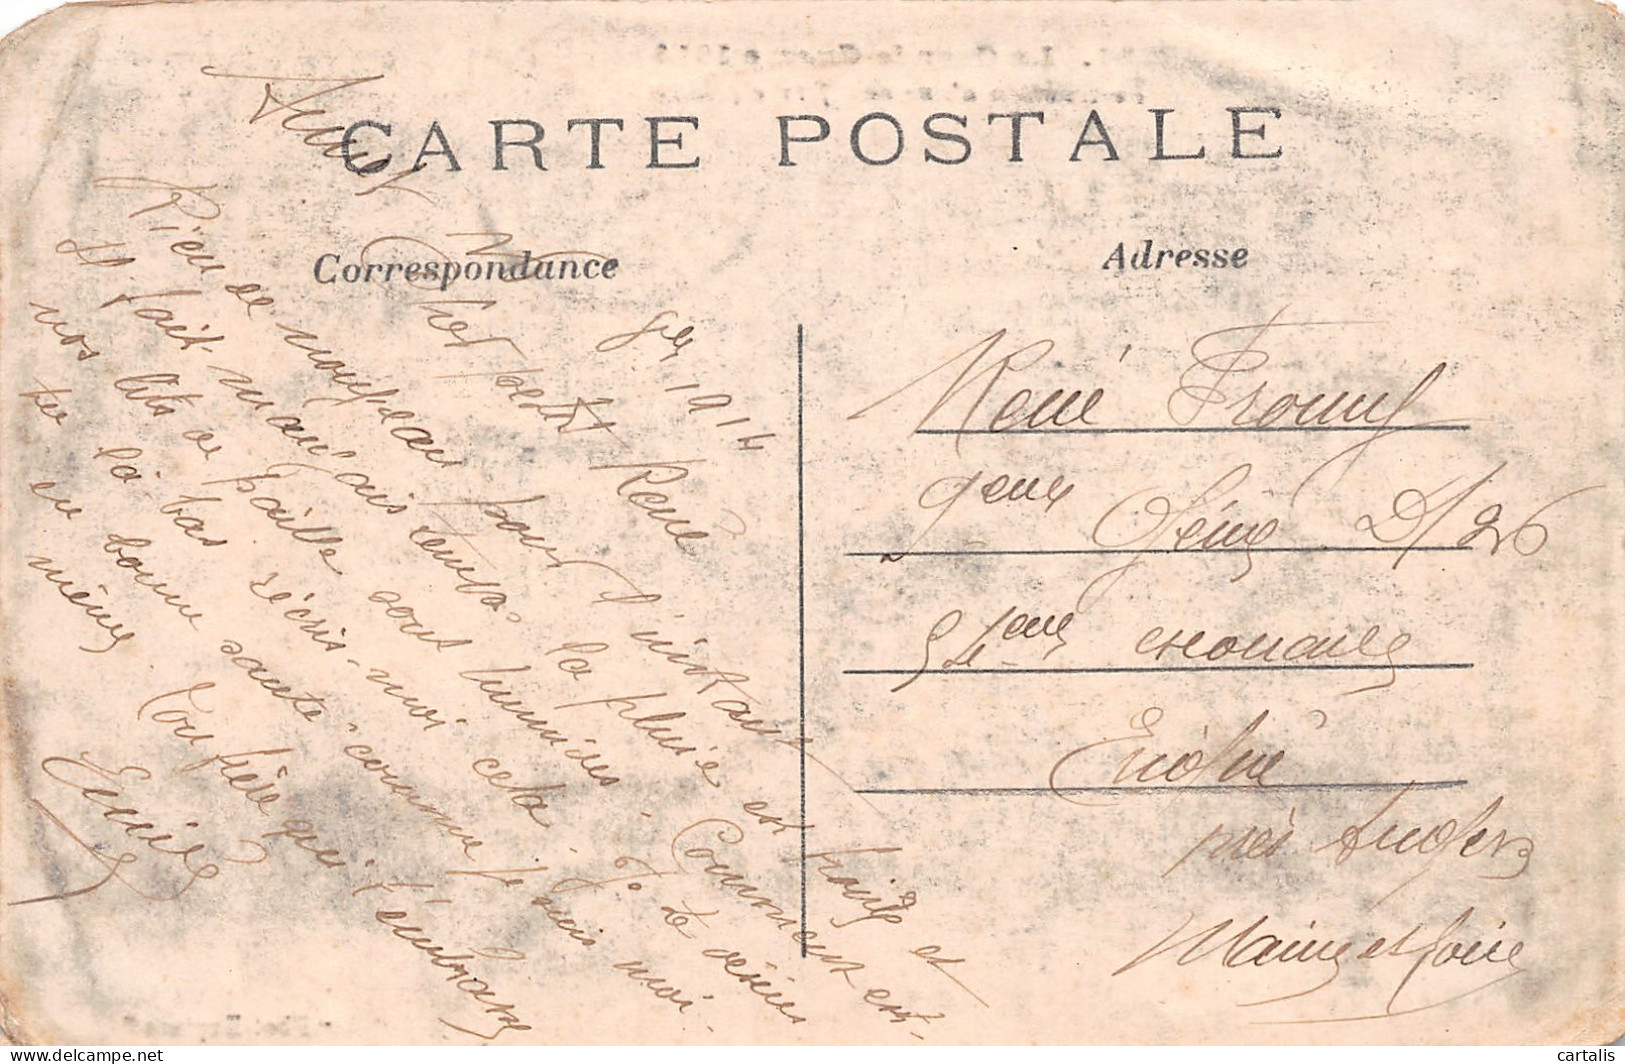 CARTE POSTALE
Correspondance
Adresse
9bre 1914
Cher petit René
Rien de nouveau pour l'instant
Il fait mauvais temps la pluie est froide et
nos lits de paille sont humides. Comment est-
tu là-bas écris-moi cela. Je te désire
en bonne santé comme je suis moi-
même. Ton frère qui t'embrasse
Emile
René Froumy
9eme Génie D/26
Ecouflé
près Angers
Maine et Loire
cartalis
www.delcampe.net